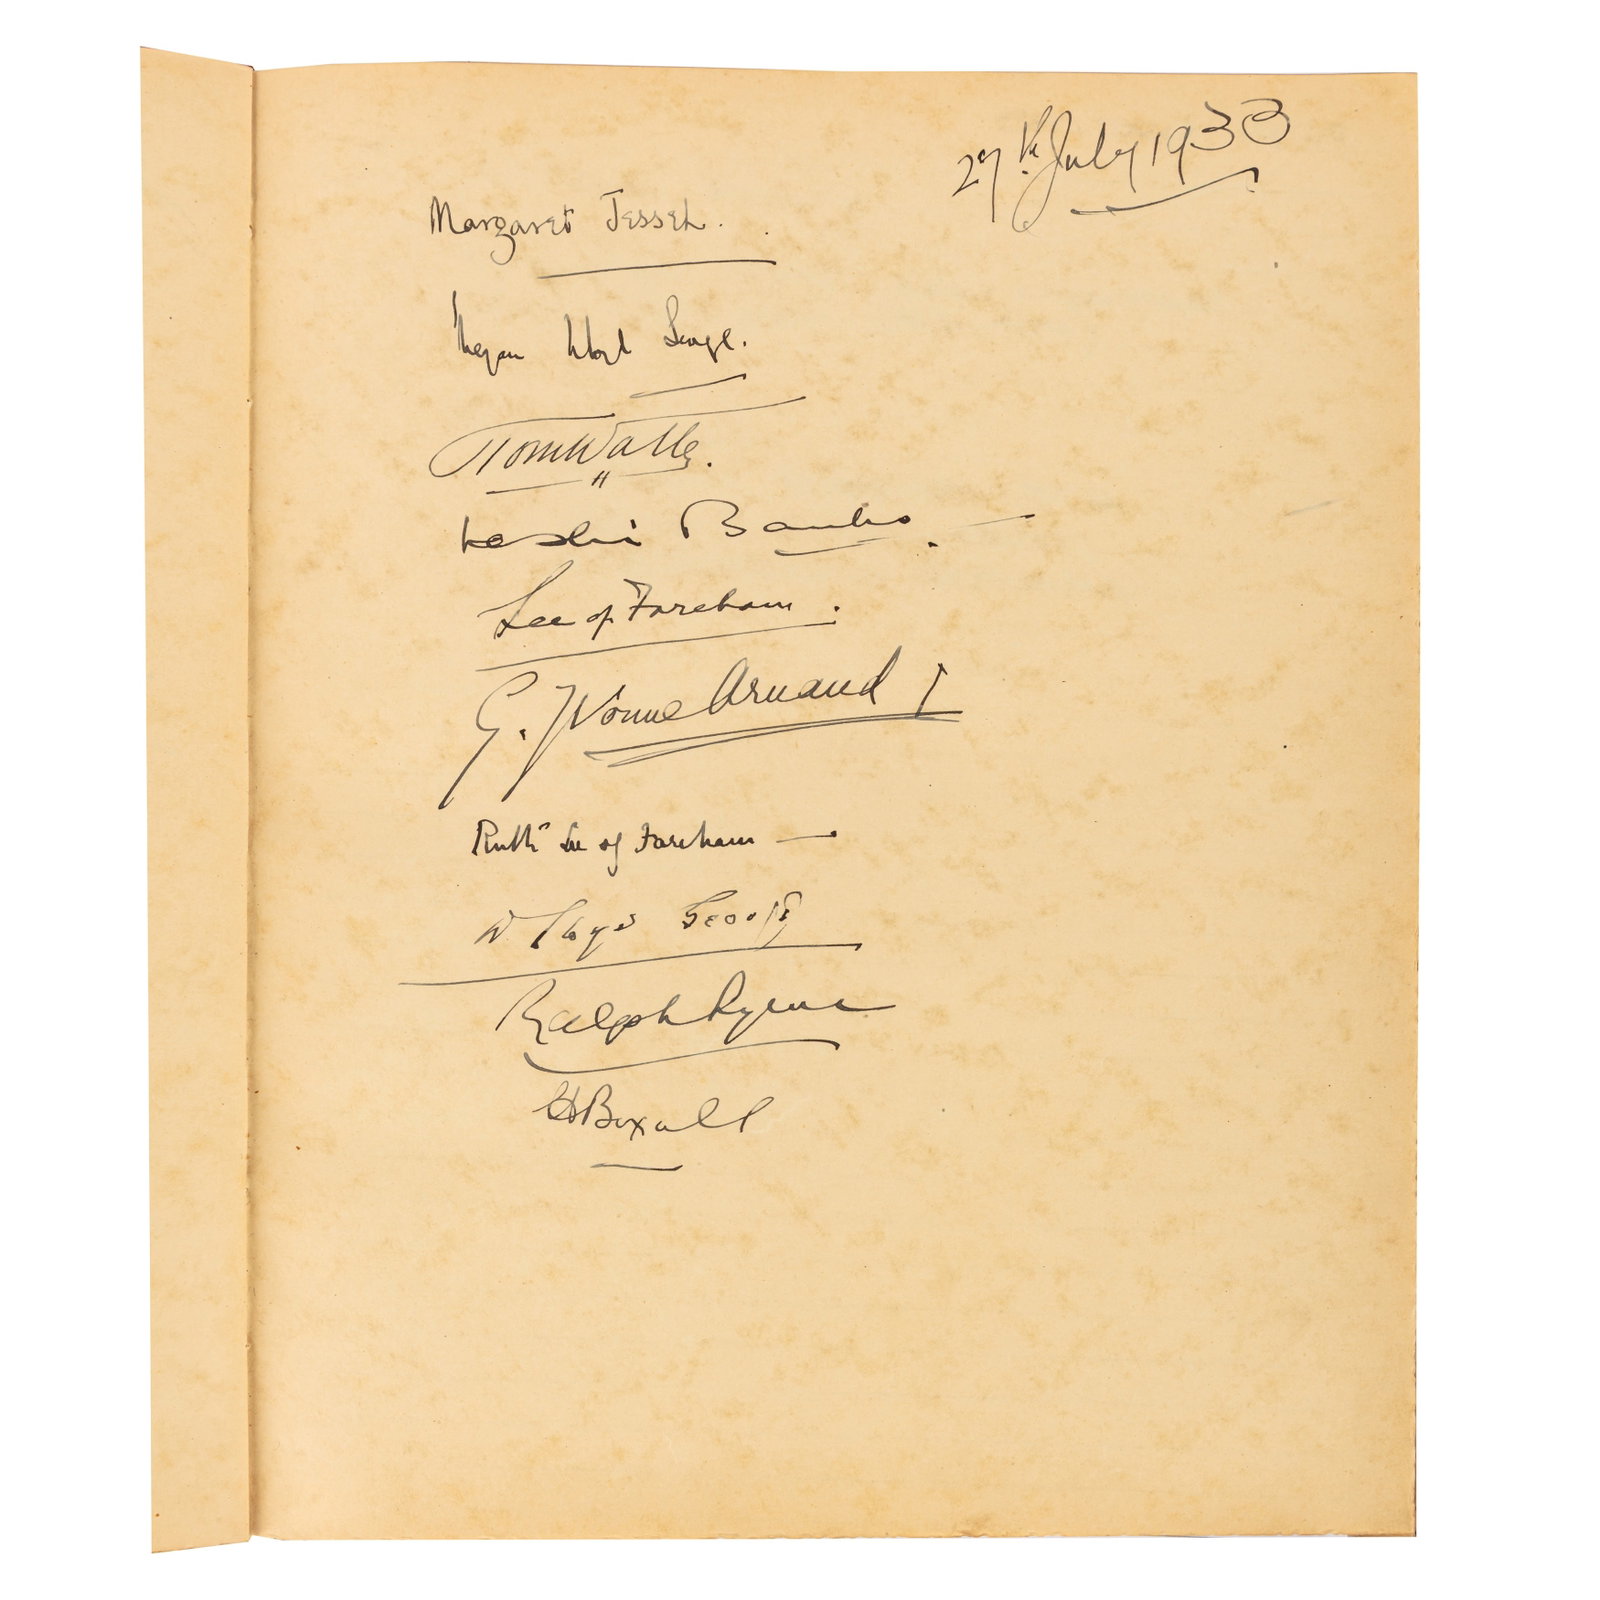 27th July 1933
Margaret Jessel.
Megan Lloyd George.
Tom Walls.
Leslie Banks.
Lee of Fareham.
G. Yvonne Arnaud
Ruth Lee of Fareham
D Lloyd George
Ralph Lynn
Boxall